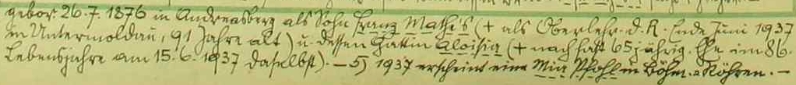 gebor. 26.7.1876 in Andreasberg als Sohn Franz Mathis (+ als Oberlehr. d. R. Ende Juni 1937
in Untermoldau, 91 Jahre alt) u. dessen Gattin Aloisia (+ nach fast 65 jährig. Ehe im 86.
Lebensjahre am 15.6.1937 daselbst). — 5) 1937 erscheint eine Mia Pfohl in Böhm.-Röhren. —